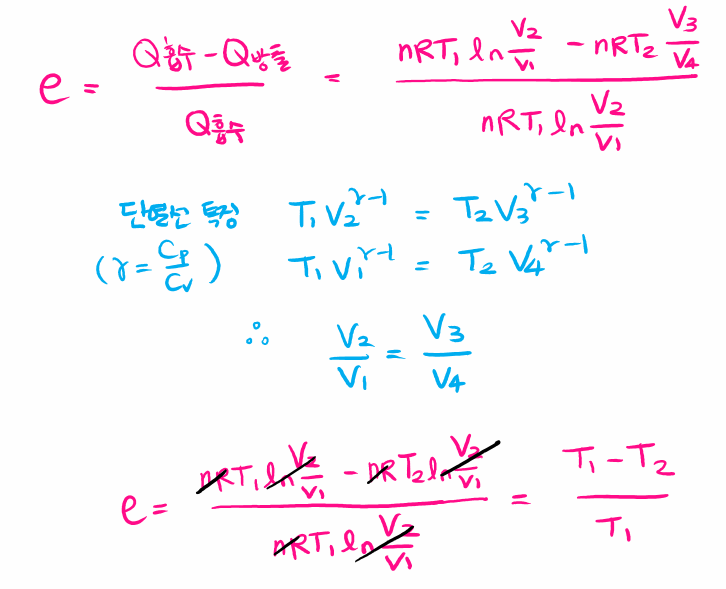 e = (Q흡수 - Q방출) / Q흡수 = (nRT₁ ln V₂/V₁ - nRT₂ V₃/V₄) / (nRT₁ ln V₂/V₁)
단열선 특징 T₁V₂^(γ-1) = T₂V₃^(γ-1)
(γ = Cp/Cv) T₁V₁^(γ-1) = T₂V₄^(γ-1)
∴ V₂/V₁ = V₃/V₄
e = (nRT₁ ln V₂/V₁ - nRT₂ ln V₂/V₁) / (nRT₁ ln V₂/V₁) = (T₁ - T₂) / T₁